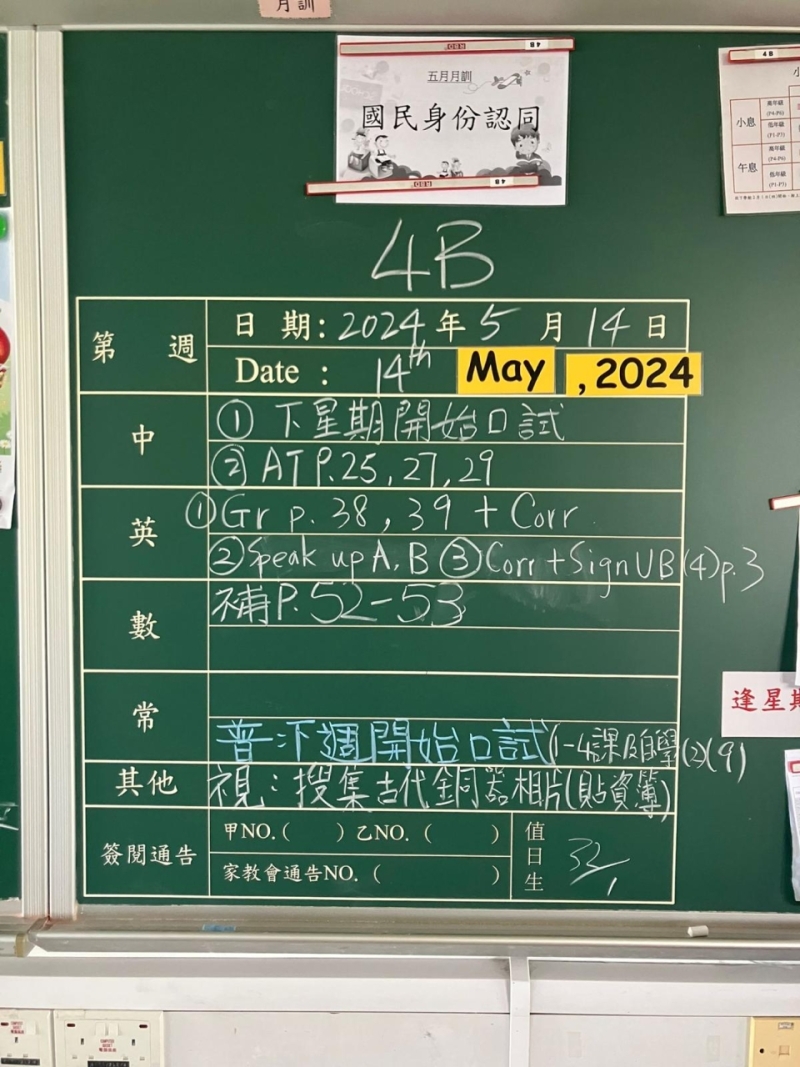 月訓
五月月訓
國民身份認同
4B
小息
高年級
(P4-P6)
低年級
(P1-P3)
午息
高年級
(P4-P6)
低年級
(P1-P3)
4B
第 週
日 期: 2024 年 5 月 14 日
Date : 14th May , 2024
中
① 下星期開始口試
② AT P.25, 27, 29
英
① Gr p. 38, 39 + Corr
② Speak up A, B ③ Corr + Sign UB (4) p.3
數
補 P. 52-53
常
普:下週開始口試(1-4課及自學(2)(9)
其他
視:搜集古代銅器相片(貼資簿)
簽閱通告
甲NO. ( ) 乙NO. ( )
家教會通告NO. ( )
值日生
32, 1
逢星期